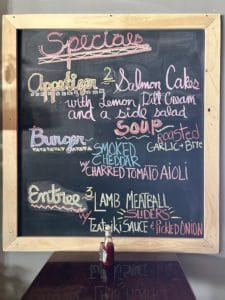 Specials
Appetizer 2 Salmon Cakes
with Lemon Dill Cream
and a side salad
SOUP Roasted
GARLIC +
Burger SMOKED
CHEDDAR
w/ CHARRED TOMATO AIOLI
Entree 3 LAMB MEATBALL
SLIDERS
w/ Tzatziki SAUCE & PICKLED ONION